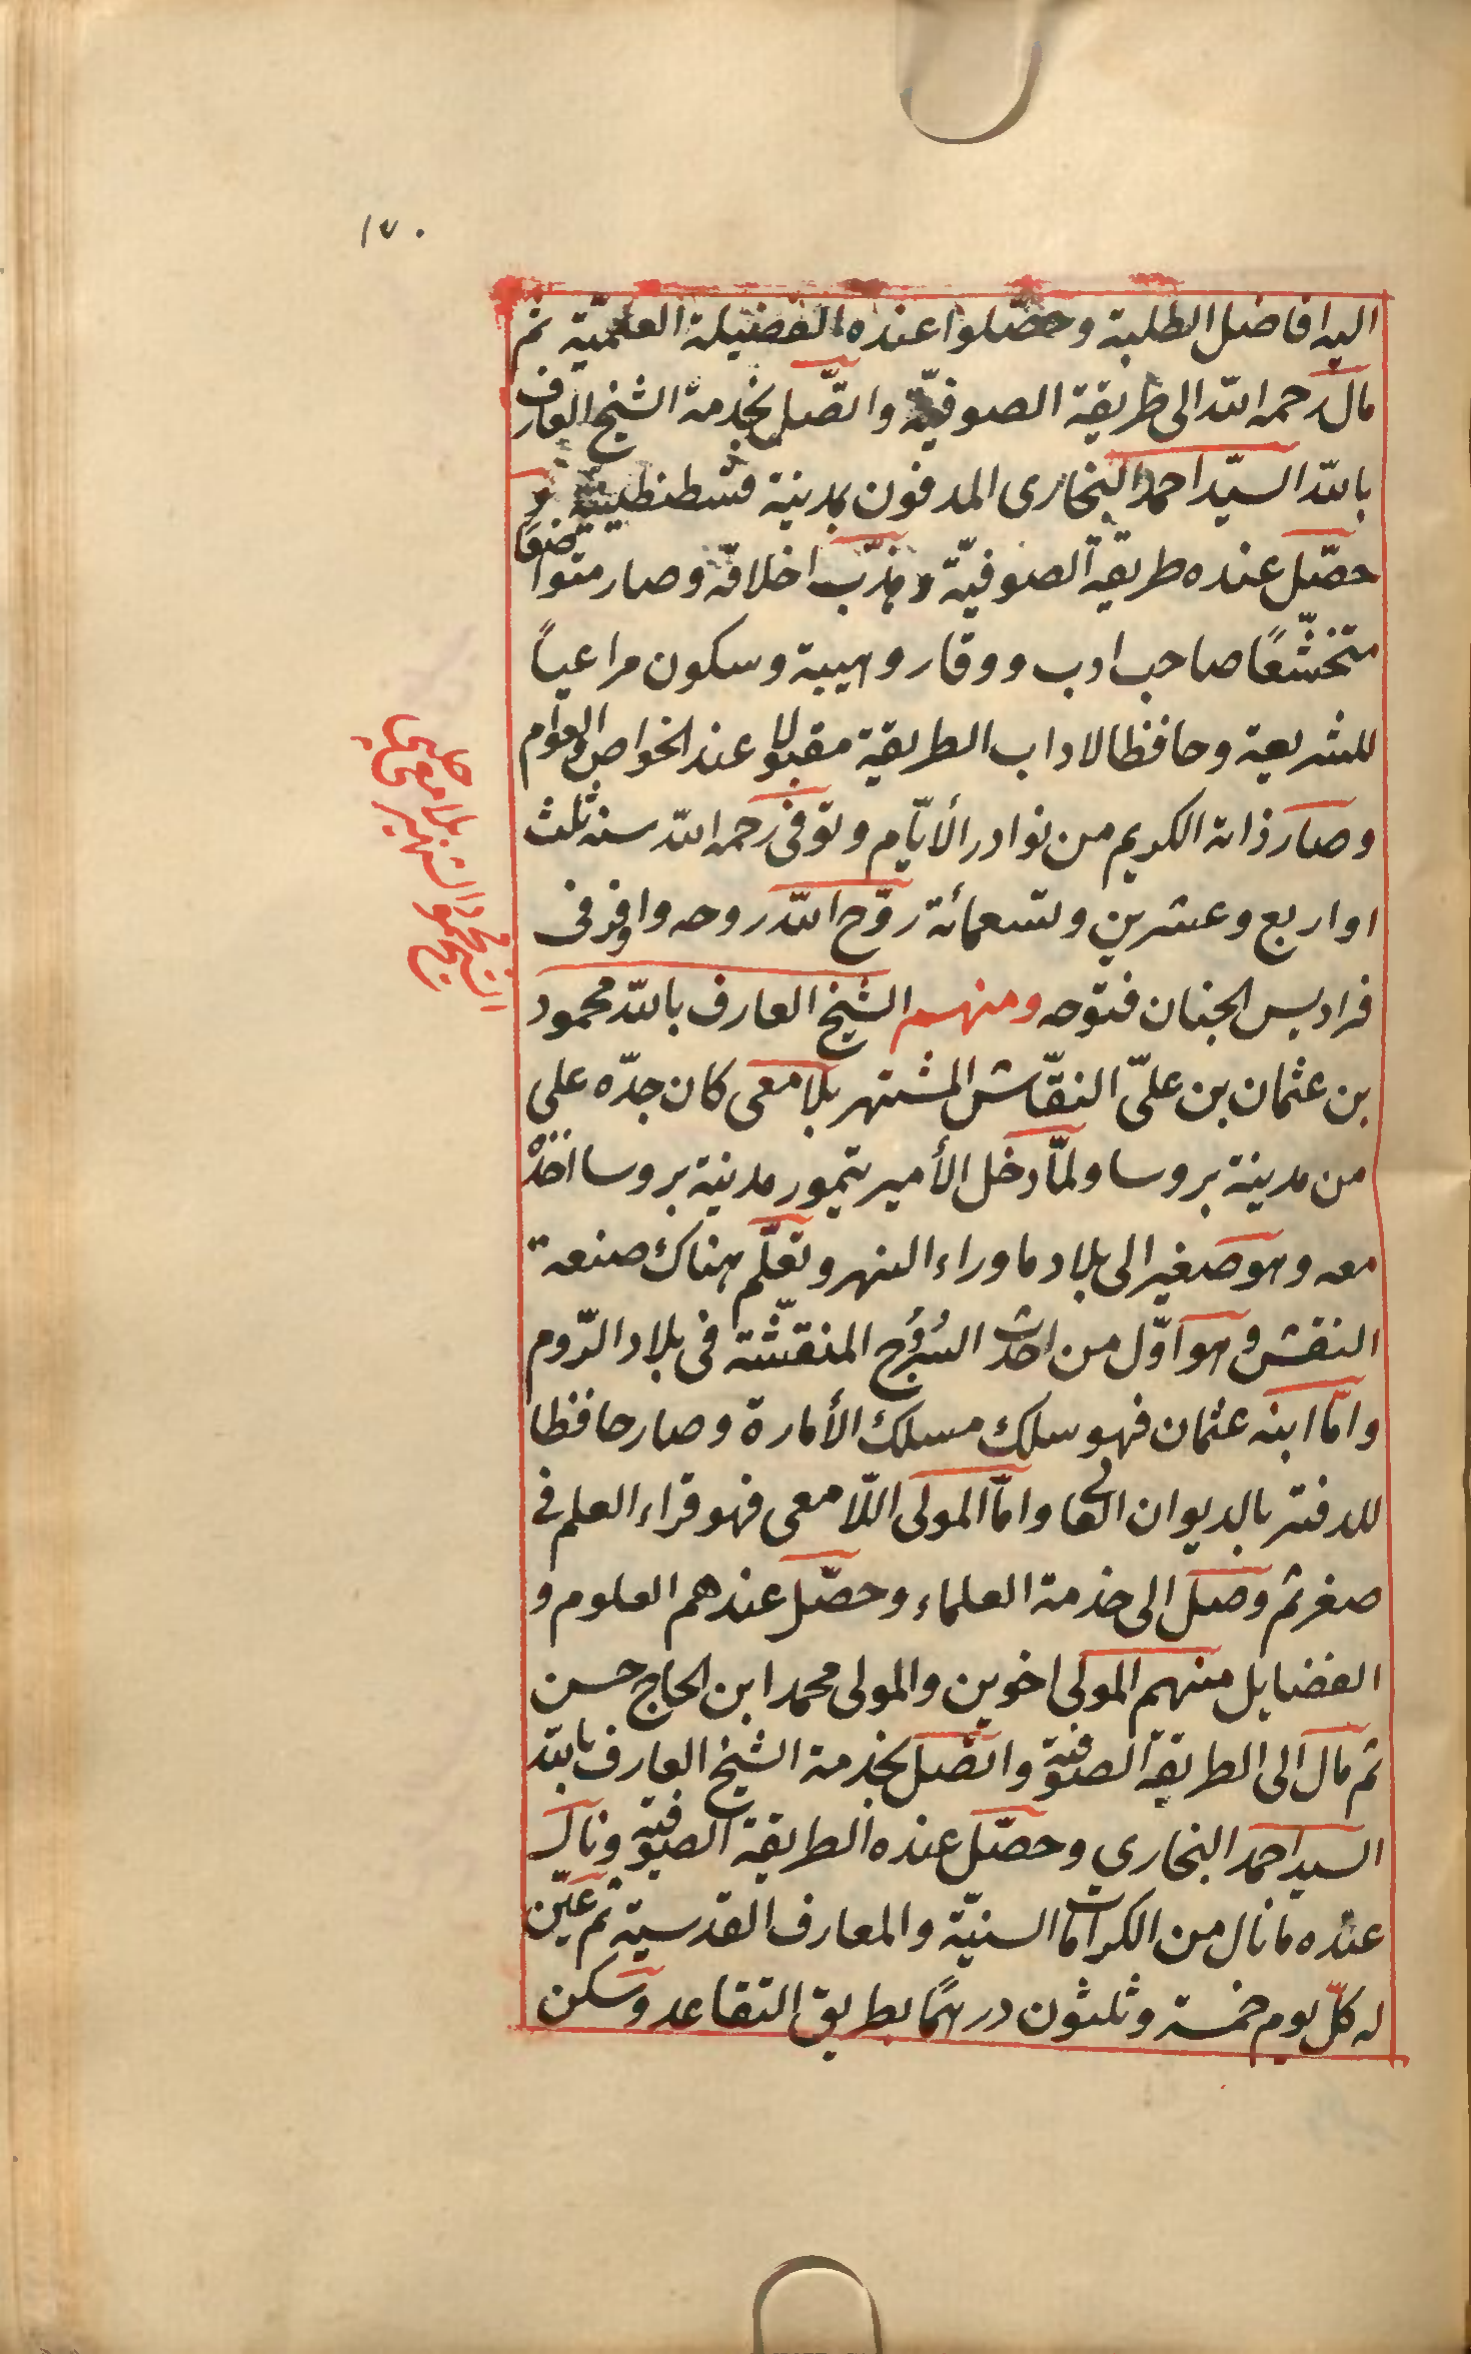 ١٧٠
اليه افاضل الطلبة وحصّلوا عنده الفضيلة العلميّة ثم
مال رحمه الله الى طريقة الصوفيّة واتّصل بخدمة الشيخ العارف
بالله السيّد احمد البخارى المدفون بمدينة قسطنطينية و
حصّل عنده طريقة الصوفيّة وهذّب اخلاقه وصار متواضعًا
متخشّعًا صاحب ادب ووقار وهيبة وسكون مراعياً
للشريعة وحافظا لاداب الطريقة مقبولا عند الخواص والعوام
وصار ذاته الكريم من نوادر الأيّام وتوفى رحمه الله سنه ثلث
او اربع وعشرين وتسعمائة روّح الله روحه واوفر فى
فراديس الجنان فتوحه ومنهم الشيخ العارف بالله محمود
بن عثمان بن علىّ النقّاش المشتهر بلامعى كان جدّه على
من مدينة بروسا ولمّا دخل الأمير تيمور مدينة بروسا اخذه
معه وهو صغير الى بلاد ماوراء النهر وتعلّم هناك صنعة
النقش وهو اوّل من احدث السُرُوج المنقّشة فى بلاد الرّوم
وامّا ابنه عثمان فهو سلك مسلك الأمارة وصار حافظا
للدفتر بالديوان العالى وامّا المولى اللّامعى فهو قراء العلم فى
صغر ثم وصل الى خدمة العلماء وحصّل عندهم العلوم و
الفضايل منهم المولى اخوين والمولى محمد ابن الحاج حسن
ثم مال الى الطريقة الصوفية واتصل بخدمة الشيخ العارف بالله
السيد احمد البخاري وحصّل عنده الطريقة الصوفية ونال
عنده مانال من الكرامات السنيّة والمعارف القدسية ثم عيّن
له كلّ يوم خمسة وثلثون درهمًا بطريق التقاعد وسكن
الشيخ محمود الشهير بلامعى چلبى